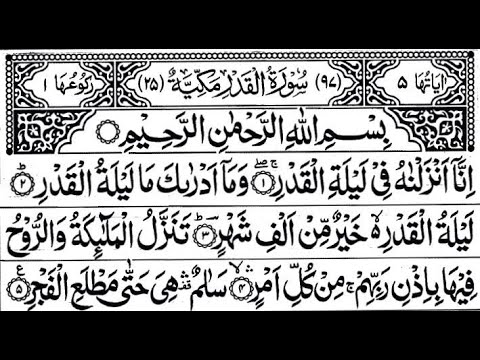 اٰيَاتُهَا ٥ (٩٧) سُوْرَةُ الْقَدْرِ مَكِّيَّةٌ (٢٥) رُكُوْعُهَا ١
بِسْمِ اللّٰهِ الرَّحْمٰنِ الرَّحِيْمِ
اِنَّآ اَنْزَلْنٰهُ فِيْ لَيْلَةِ الْقَدْرِ ۝١ وَمَآ اَدْرٰىكَ مَا لَيْلَةُ الْقَدْرِ ۝٢
لَيْلَةُ الْقَدْرِ ەۙ خَيْرٌ مِّنْ اَلْفِ شَهْرٍ ۝٣ تَنَزَّلُ الْمَلٰٓئِكَةُ وَالرُّوْحُ
فِيْهَا بِاِذْنِ رَبِّهِمْ ۚ مِنْ كُلِّ اَمْرٍ ۝٤ سَلٰمٌ ۛ هِيَ حَتّٰى مَطْلَعِ الْفَجْرِ ۝٥